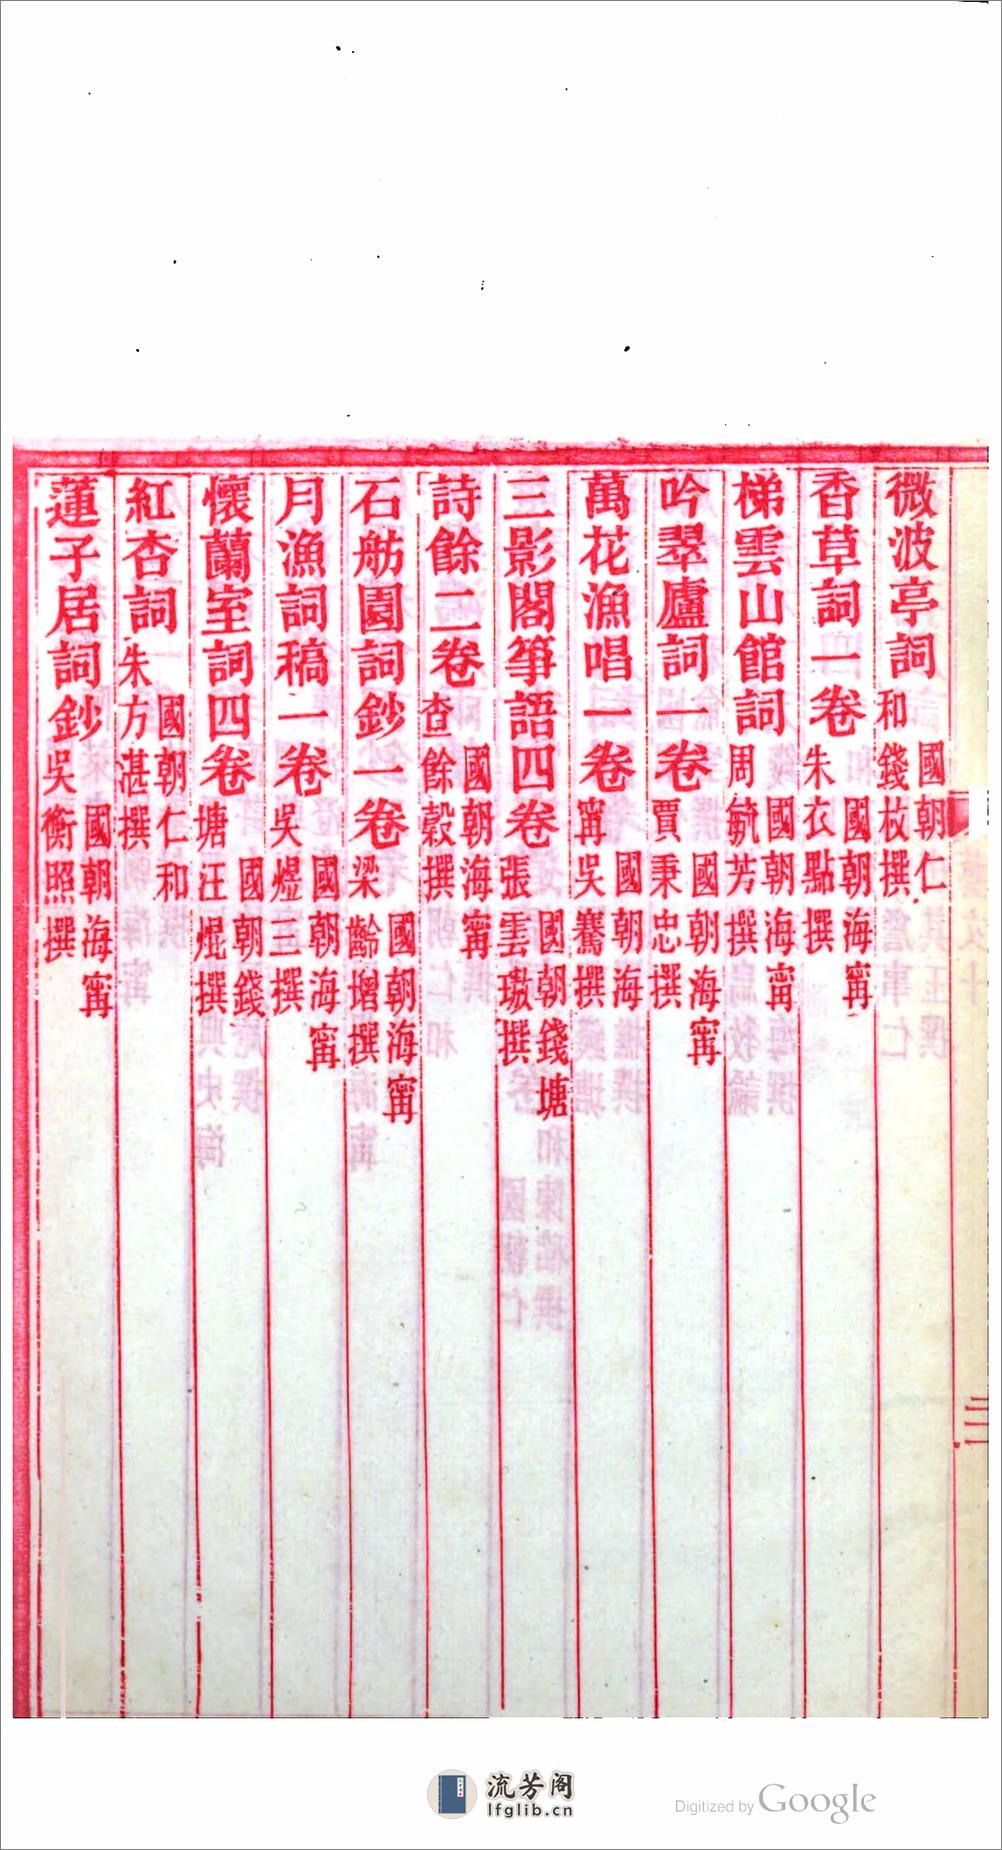 微波亭詞國朝仁和錢枚撰
香草詞一卷國朝海甯朱衣點撰
梯雲山館詞國朝海甯周毓芳撰
吟翠廬詞一卷國朝海甯賈秉忠撰
萬花漁唱一卷國朝海甯吳騫撰
三影閣箏語四卷國朝錢塘張雲璈撰
詩餘二卷國朝海甯查餘穀撰
石舫園詞鈔一卷國朝海甯梁齡增撰
月漁詞稿一卷國朝海甯吳煜三撰
懷蘭室詞四卷國朝錢塘汪焜撰
紅杏詞國朝仁和朱方湛撰
蓮子居詞鈔國朝海甯吳衡照撰
三
流芳阁
lfglib.cn
Digitized by Google